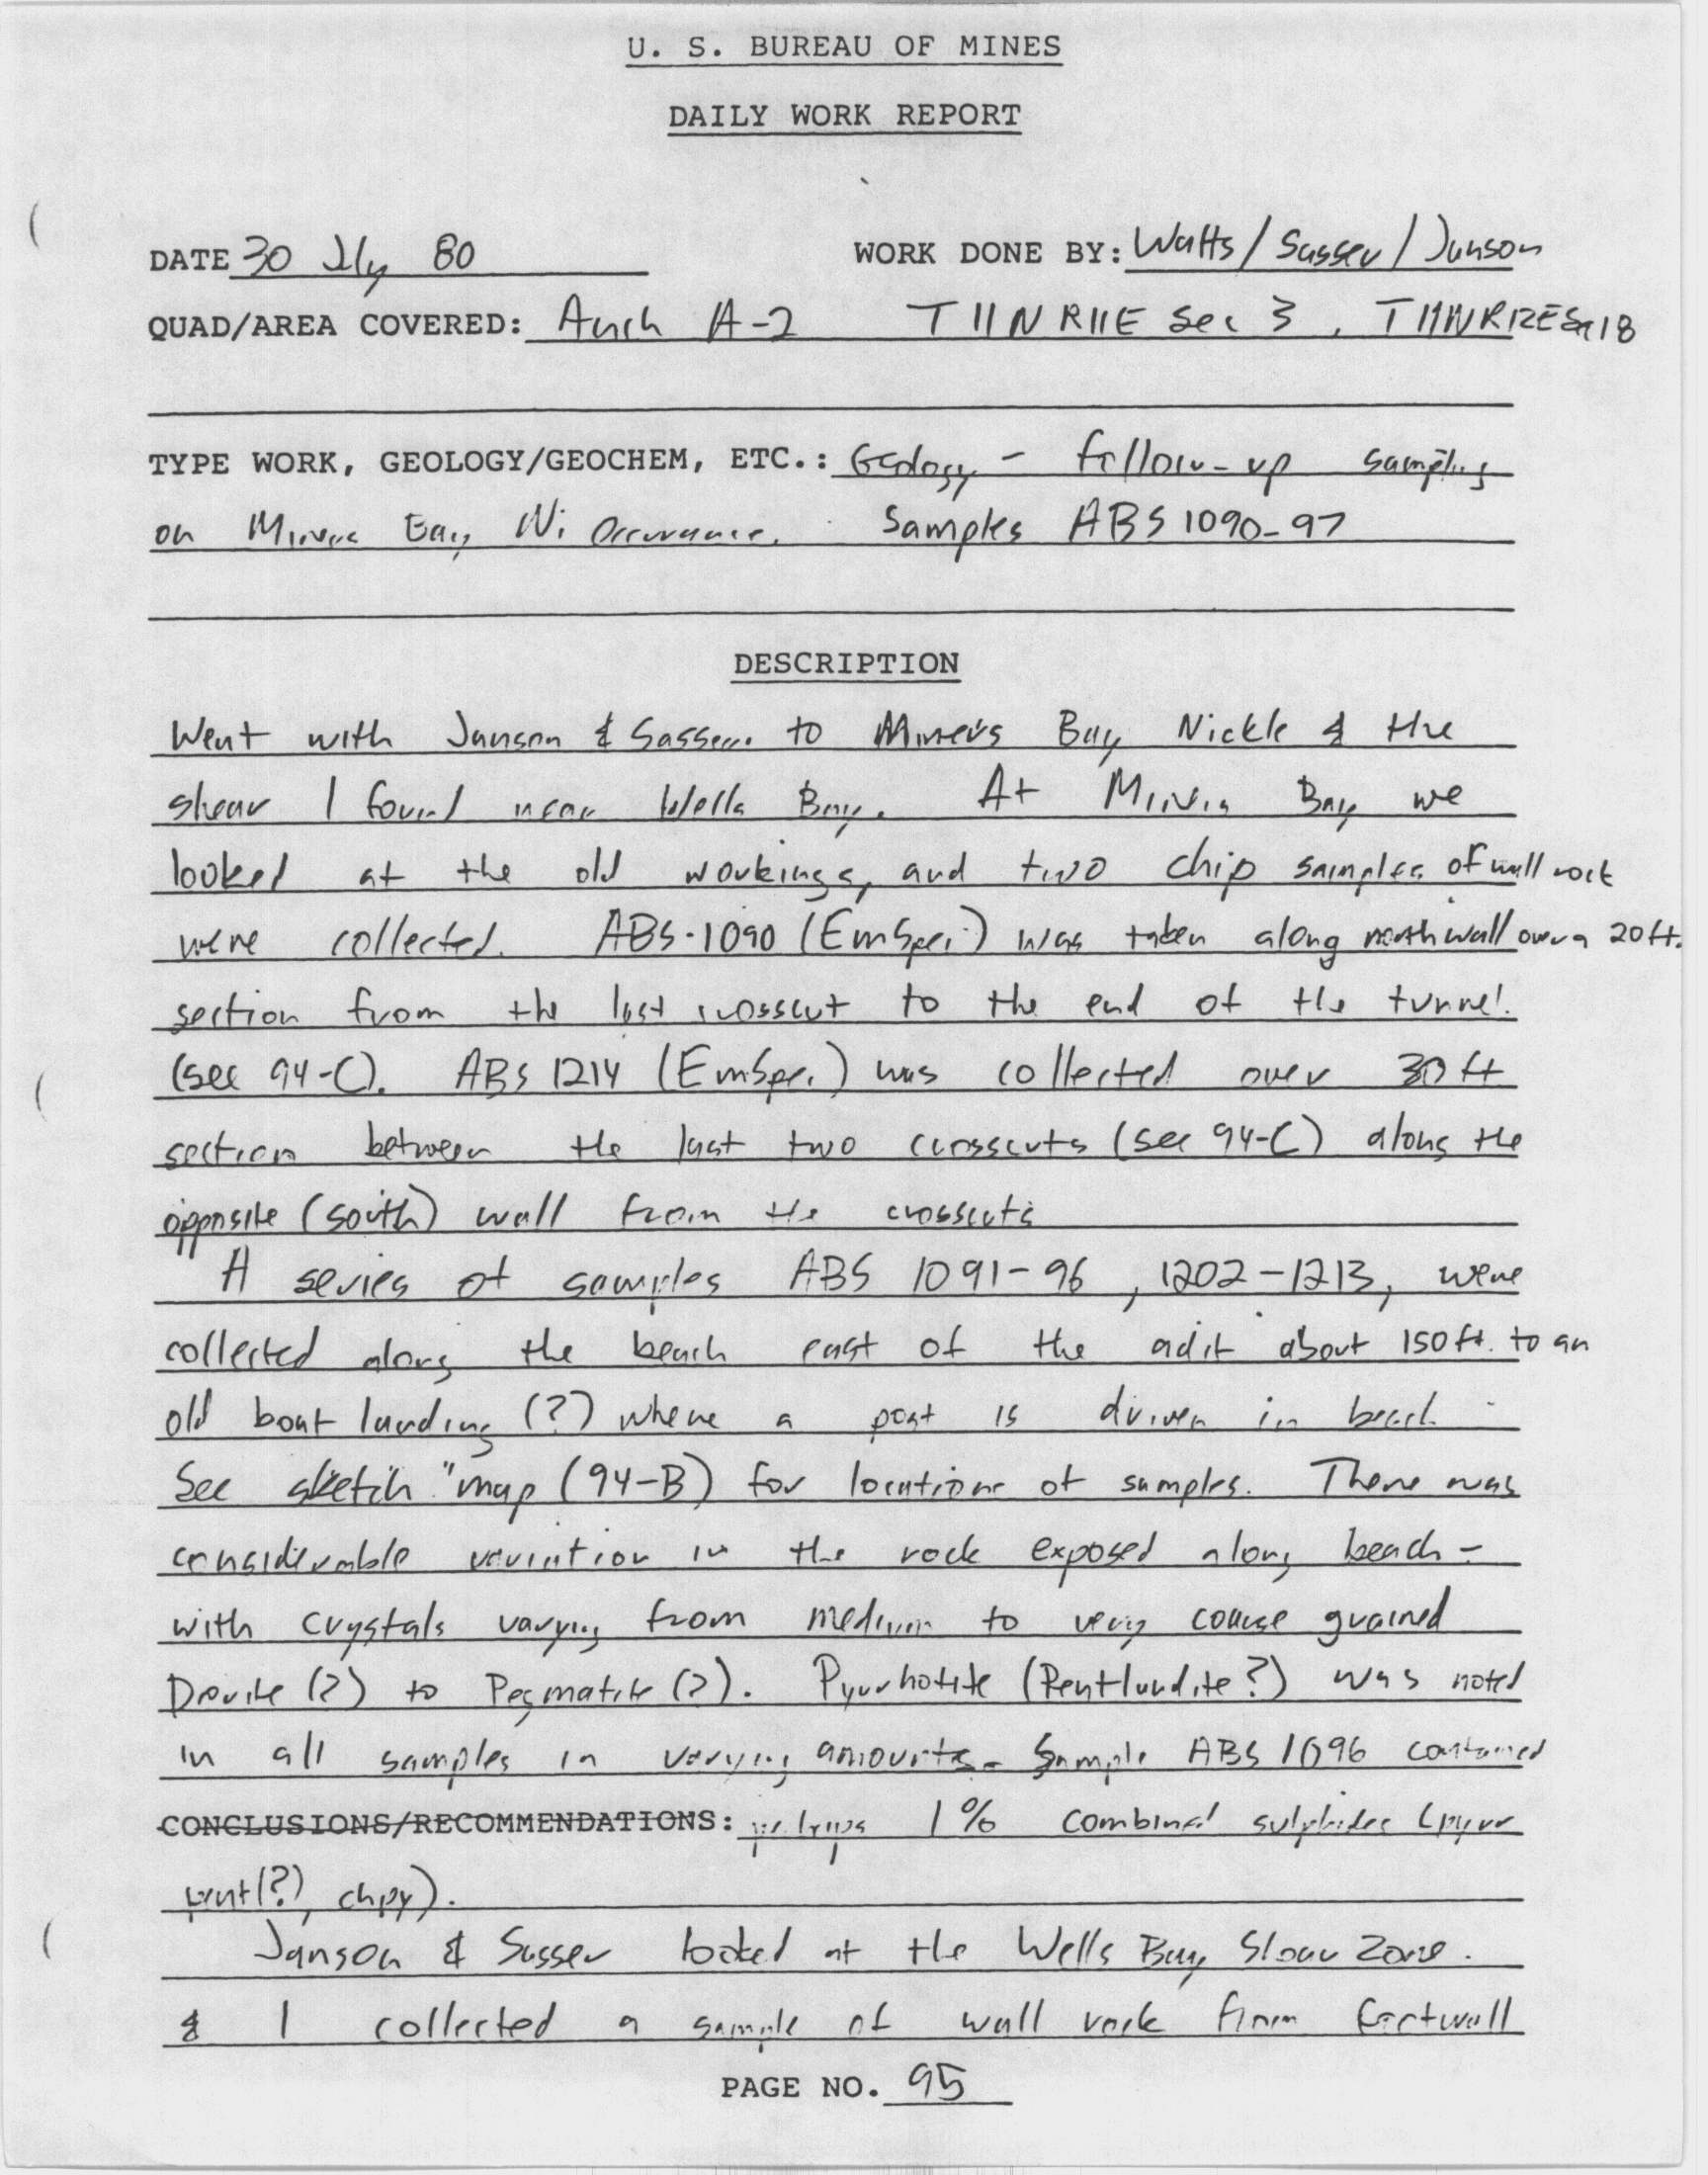 U. S. BUREAU OF MINES
DAILY WORK REPORT
DATE 30 Jly 80 WORK DONE BY: Watts / Sasser / Janson
QUAD/AREA COVERED: Anch A-2 T11N R11E Sec 3, T11N R12E Sec 18
TYPE WORK, GEOLOGY/GEOCHEM, ETC.: Geology - follow-up sampling
on Miners Bay Ni Occurance. Samples ABS 1090-97
DESCRIPTION
Went with Janson & Sasser to Miners Bay Nickle & the
shear I found near Wells Bay. At Miners Bay we
looked at the old workings, and two chip samples of wall rock
were collected. ABS-1090 (EmSpec) was taken along north wall over a 20 ft.
section from the last crosscut to the end of the tunnel.
(see 94-C). ABS 1214 (EmSpec.) was collected over 30 ft
section between the last two crosscuts (see 94-C) along the
opposite (south) wall from the crosscuts
A series of samples ABS 1091-96, 1202-1213, were
collected along the beach east of the adit about 150 ft. to an
old boat landing (?) where a post is driven in beach.
See sketch map (94-B) for locations of samples. There was
considerable variation in the rock exposed along beach -
with crystals varying from medium to very coarse grained
Diorite (?) to Pegmatite (?). Pyrrhotite (Pentlandite?) was noted
in all samples in varying amounts. Sample ABS 1096 contained
CONCLUSIONS/RECOMMENDATIONS: perhaps 1% combined sulphides (pyrr
pent(?), chpy).
Janson & Sasser looked at the Wells Bay Shear Zone.
& I collected a sample of wall rock from footwall
PAGE NO. 95